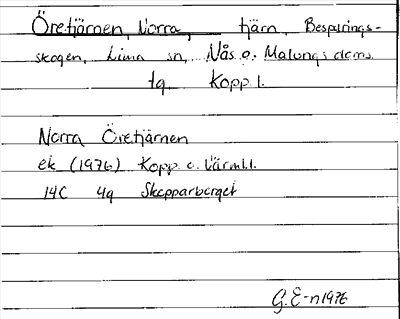 Öretjärnen, Norra, tjärn, Besparings-
skogen, Lima sn, Nås o. Malungs doms.
tg Kopp. l.
Norra Öretjärnen
ek (1976) Kopp o. Värml.l.
14C 4g Skepparberget
G. E-n 1976